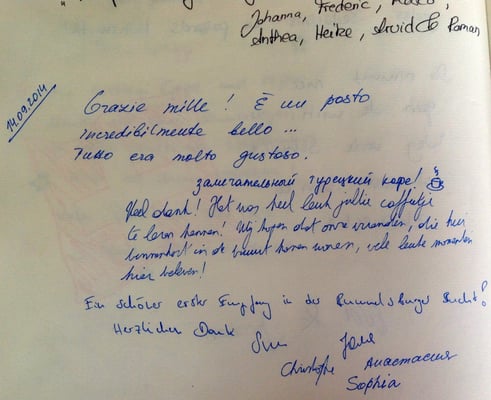 Johanna, Frederic,
Anthea, Heike, Arvid & Roman
14.09.2014
Grazie mille! È un posto
incredibilmente bello ...
Tutto era molto gustoso.
замечательный турецкий кофе!
Veel dank! Het was heel leuk jullie caffeetje
te leren kennen! Wij hopen dat onze vrienden, die hier
binnenkort in de buurt komen wonen, vele leuke momenten
hier beleven!
Ein schöner erster Empfang in der Rummelsburger Bucht!
Herzlichen Dank
Christophe Анастасия
Sophia